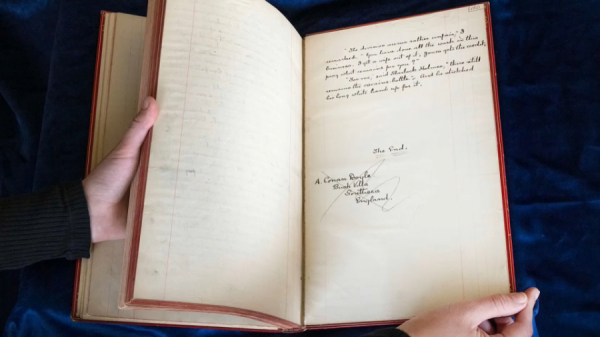 "The division seems rather unfair," I
remarked. "You have done all the work in this
business. I get a wife out of it, Jones gets the credit,
pray what remains for you?"
"For me," said Sherlock Holmes, "there still
remains the cocaine-bottle." And he stretched
his long white hand up for it.
The End.
A. Conan Doyle
Bush Villa
Southsea
England.